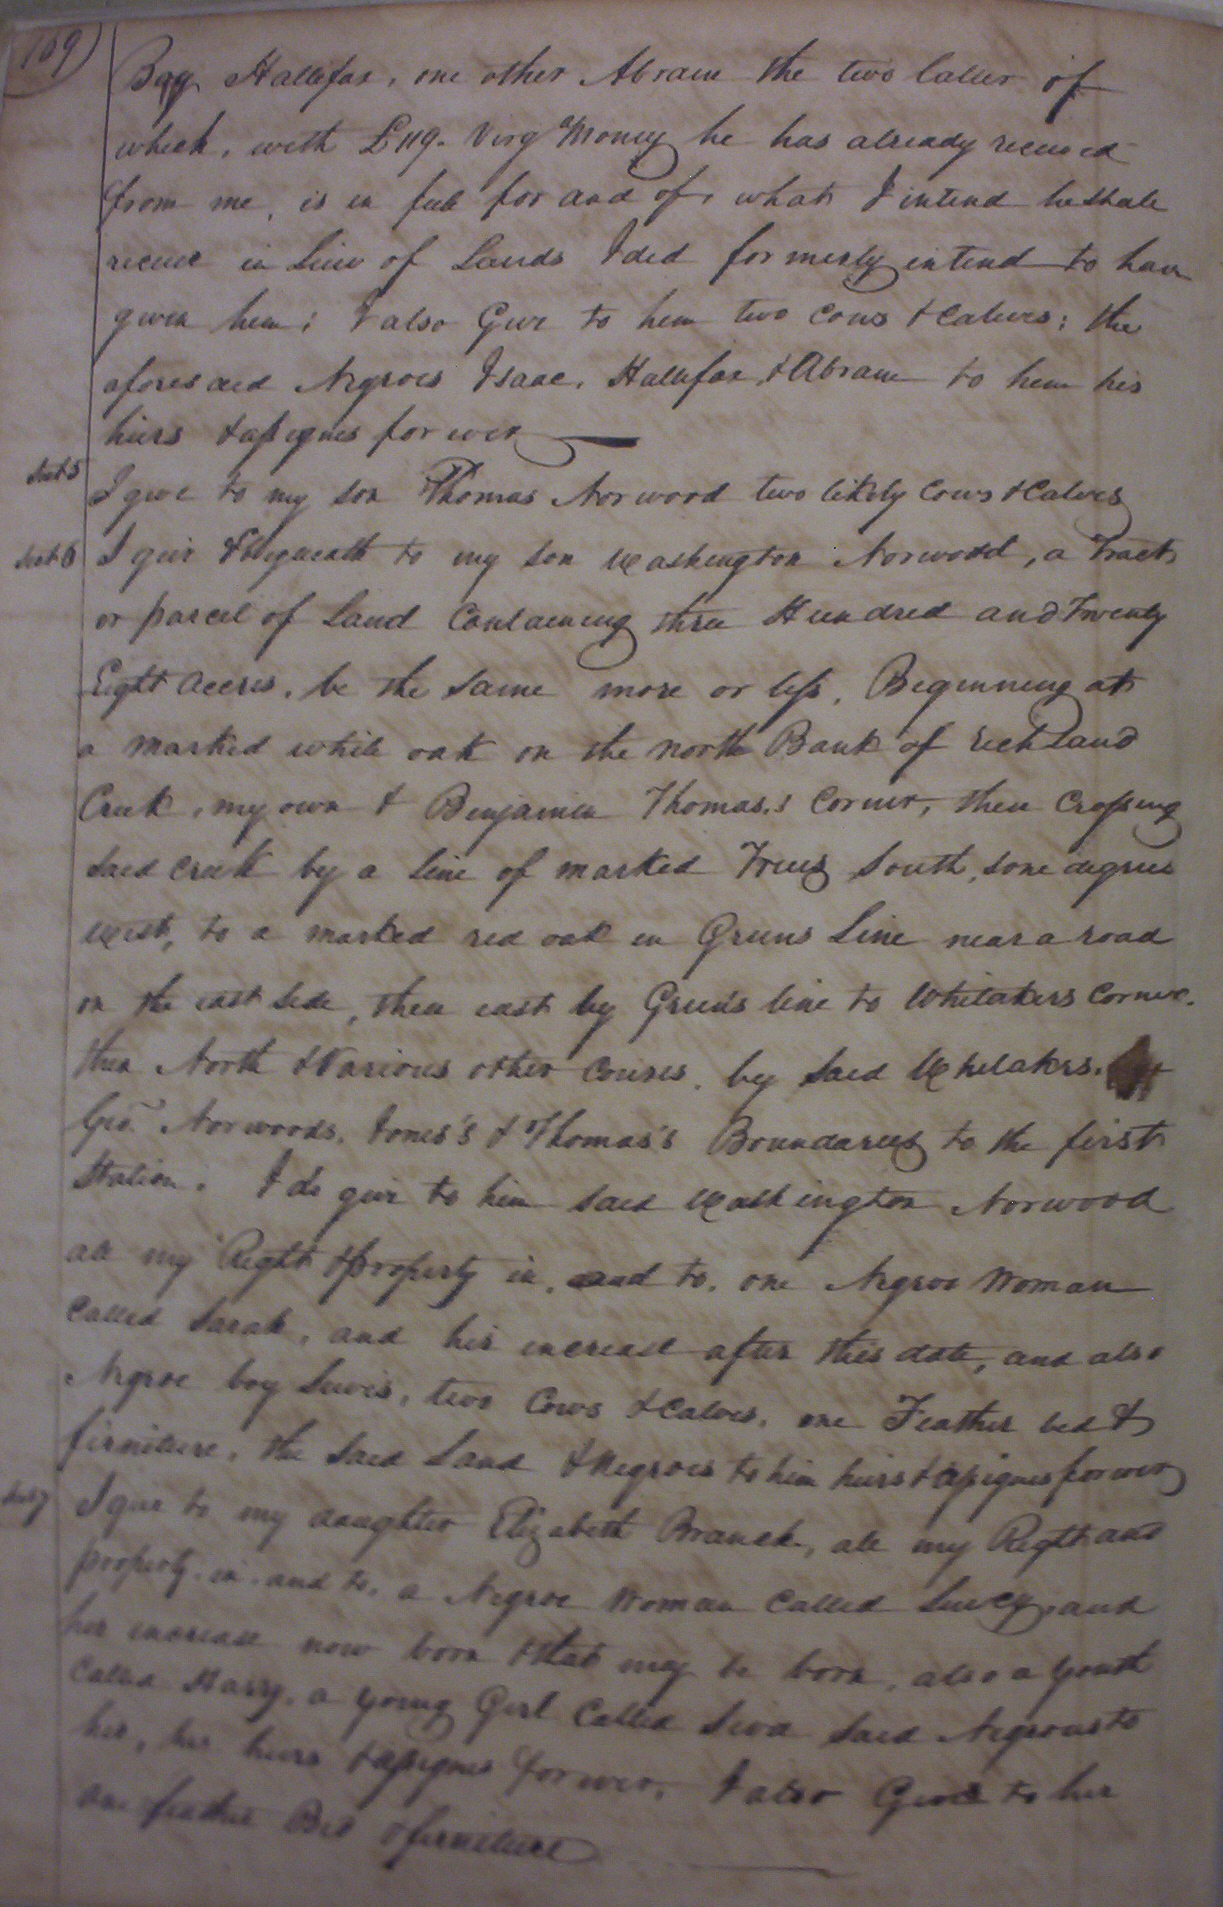 109
Boy Hallifax, one other Abram the two latter of
which, with £119. Virg Money he has already received
from me, is in full for and of, what I intend he shall
receive in Lieu of Lands I did formerly intend to have
given him; I also Give to him two Cows & Calves; the
aforesaid Negroes Isaac, Hallifax, & Abram to him his
hiers & assignes forever
Sect 5 I give to my son Thomas Norwood two likely Cows & Calves
Sect 6 I give & bequeath to my son Washington Norwood, a Tract
or parcel of Land Containing three Hundred and Twenty
Eight Accres, be the same more or less, Beginning at
a marked white oak on the north Bank of rich Land
Creek, my own & Benjamin Thomas,s Corner, then Crossing
said creek by a line of marked Trees South, some degrees
West, to a marked red oak in Greens Line near a road
on the east side, then east by Green's line to Whitakers Corner.
then North & Various other Courses, by said Whitakers,
Geo. Norwoods, Jones's & Thomas's Boundaries to the first
Station. I do give to him said Washington Norwood
all my Right & property in, and to, one Negroe Woman
Called Sarah, and her increase after this date, and also
Negroe boy Lewis, two Cows & Calves, one Feather bed &
firniture, the said Land & Negroes to him hiers & assignes forever
Sect 7 I give to my daughter Elizabeth Branch, all my Right and
property, in, and to, a Negroe Woman Called Luucy, and
her increase now born & that may be born, also a youth
Called Harry, a young Girl Called Siva said Negroes to
her, her hiers & assignes forever, I also Give to her
one feather Bed & firniture